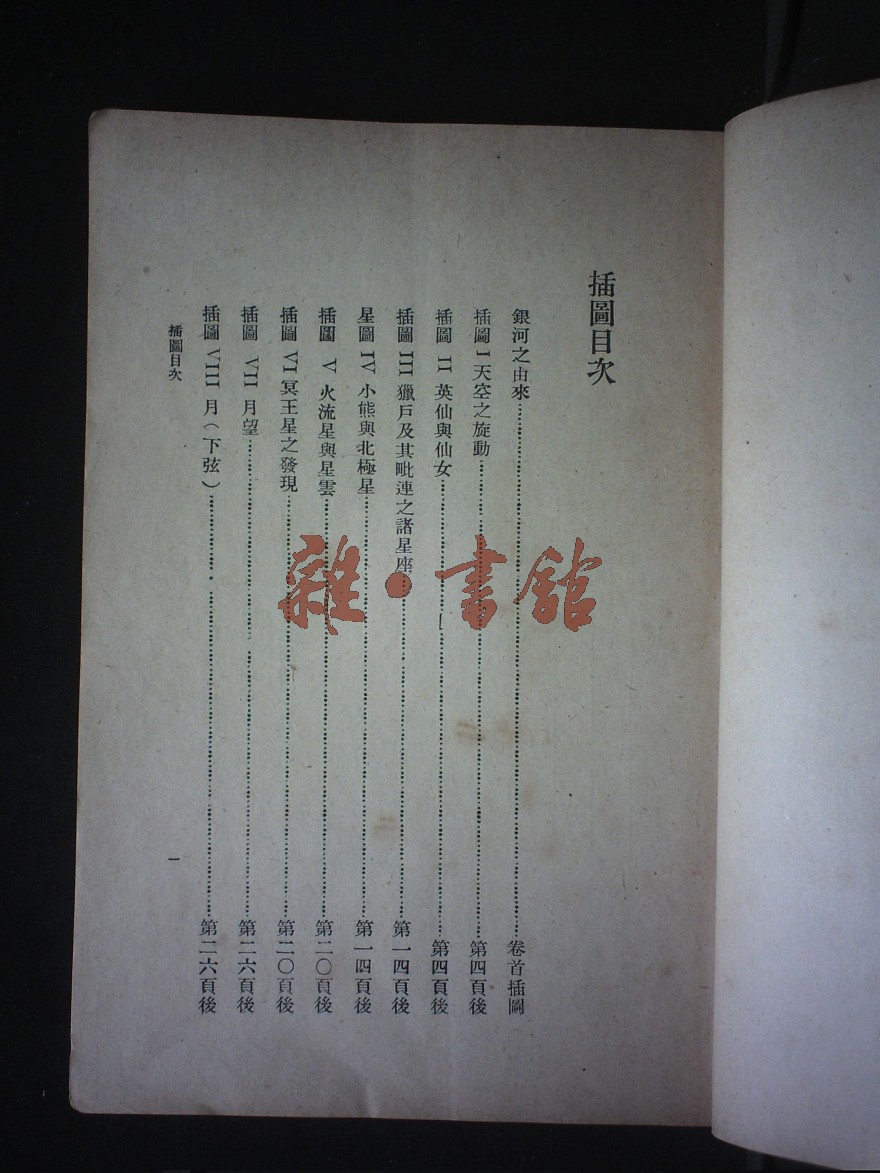 插圖目次
銀河之由來……卷首插圖
插圖 I 天空之旋動……第四頁後
插圖 II 英仙與仙女……第四頁後
插圖 III 獵戶及其毗連之諸星座……第一四頁後
星圖 IV 小熊與北極星……第一四頁後
插圖 V 火流星與星雲……第二〇頁後
插圖 VI 冥王星之發現……第二〇頁後
插圖 VII 月望……第二六頁後
插圖 VIII 月（下弦）……第二六頁後
插圖目次
一
雜·書館